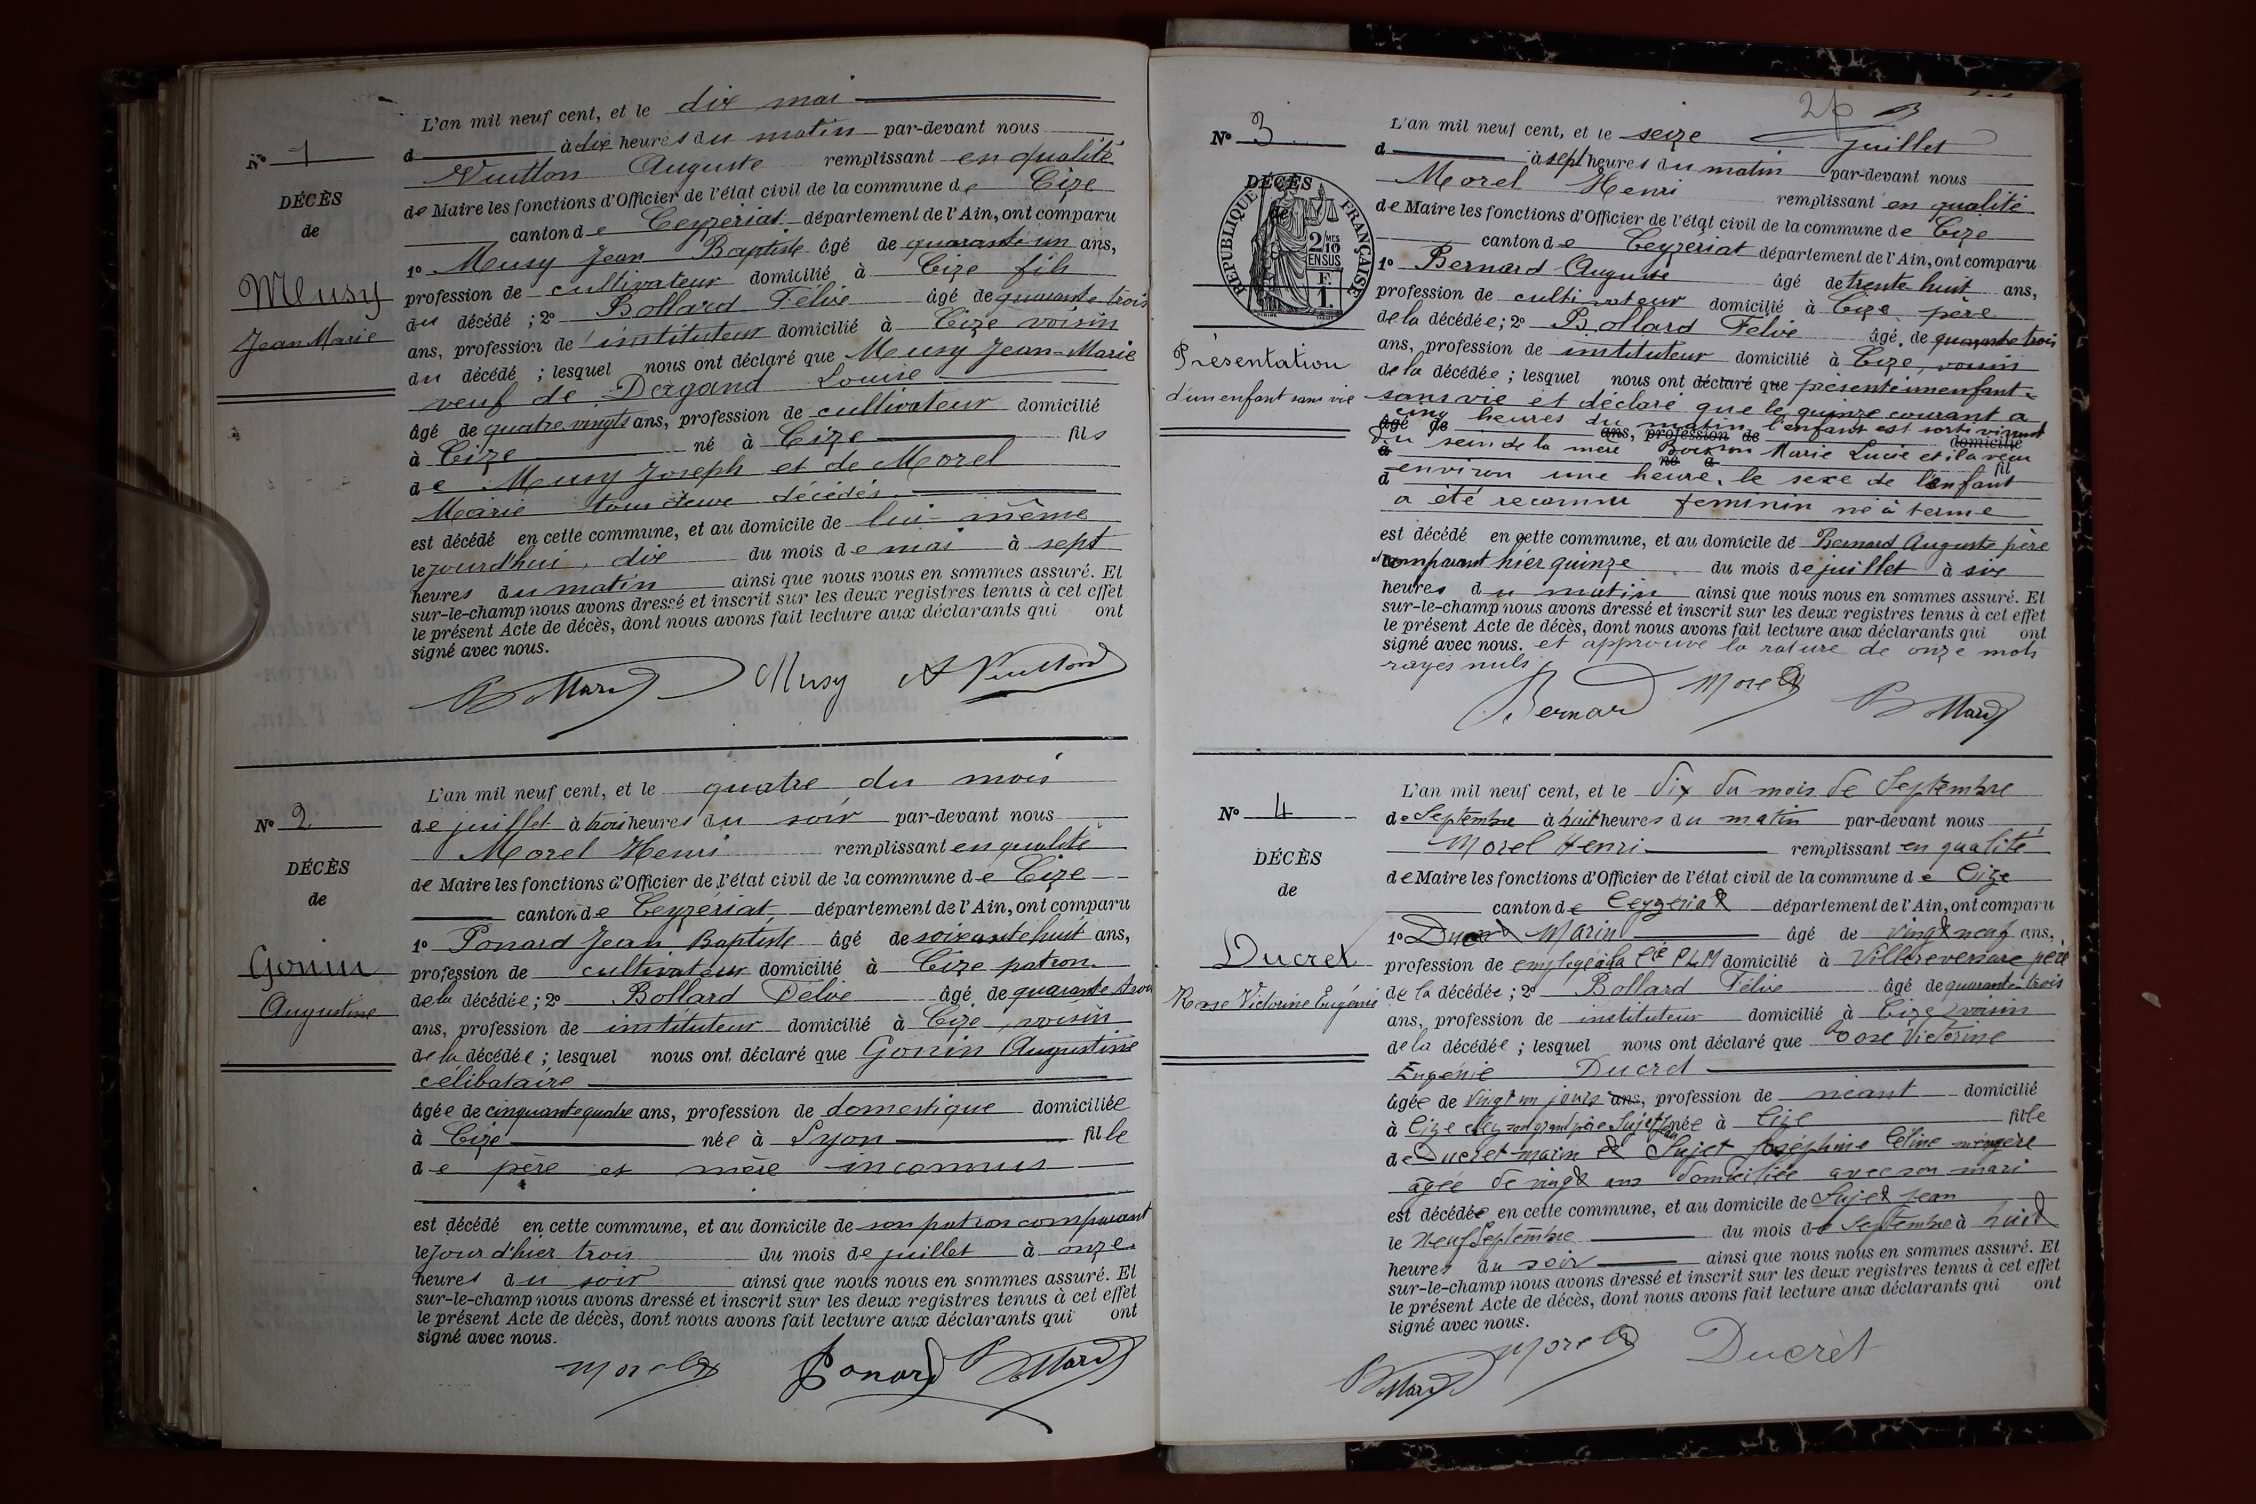 L'an mil neuf cent, et le dix mai
N° 1
d à dix heures du matin par-devant nous
Vuitton Auguste remplissant en qualité
DÉCÈS
de Maire les fonctions d'Officier de l'état civil de la commune de Cize
de
canton de Ceyzériat département de l'Ain, ont comparu
1° Musy Jean Baptiste âgé de quarante un ans,
Musy
profession de cultivateur domicilié à Cize fils
Jean Marie
du décédé ; 2° Bollard Félix âgé de quarante trois
ans, profession de instituteur domicilié à Cize voisin
du décédé ; lesquel nous ont déclaré que Musy Jean-Marie
veuf de Dergand Louise
âgé de quatre vingts ans, profession de cultivateur domicilié
à Cize né à Cize fils
de Musy Joseph et de Morel
Marie tous deux décédés.
est décédé en cette commune, et au domicile de lui-même
le jourd'hui, dix du mois de mai à sept
heures du matin ainsi que nous nous en sommes assuré. Et
sur-le-champ nous avons dressé et inscrit sur les deux registres tenus à cet effet
le présent Acte de décès, dont nous avons fait lecture aux déclarants qui ont
signé avec nous.
Bollard Musy A Vuitton
L'an mil neuf cent, et le quatre du mois
N° 2
de juillet à trois heures du soir par-devant nous
Morel Henri remplissant en qualité
DÉCÈS
de Maire les fonctions d'Officier de l'état civil de la commune de Cize
de
canton de Ceyzériat, département de l'Ain, ont comparu
1° Ponard Jean Baptiste âgé de soixante huit ans,
Gonin
profession de cultivateur domicilié à Cize patron
Augustine
de la décédée ; 2° Bollard Félix âgé de quarante trois
ans, profession de instituteur domicilié à Cize, voisin
de la décédée ; lesquel nous ont déclaré que Gonin Augustine
célibataire
âgée de cinquante quatre ans, profession de domestique domiciliée
à Cize née à Lyon fille
de père et mère inconnus
est décédé en cette commune, et au domicile de son patron comparant
le jour d'hier trois du mois de juillet à onze
heures du soir ainsi que nous nous en sommes assuré. Et
sur-le-champ nous avons dressé et inscrit sur les deux registres tenus à cet effet
le présent Acte de décès, dont nous avons fait lecture aux déclarants qui ont
signé avec nous.
Morel Ponard Bollard
26
L'an mil neuf cent, et le seize juillet
N° 3
d à sept heures du matin par-devant nous
Morel Henri remplissant en qualité
DÉCÈS
de
RÉPUBLIQUE FRANÇAISE
2/10 MES
EN SUS
F.
1.
de Maire les fonctions d'Officier de l'état civil de la commune de Cize
canton de Ceyzériat département de l'Ain, ont comparu
1° Bernard Auguste âgé de trente huit ans,
profession de cultivateur domicilié à Cize père
de la décédée ; 2° Bollard Félix âgé de quarante trois
ans, profession de instituteur domicilié à Cize, voisin
Présentation
d'un enfant sans vie
de la décédée ; lesquel nous ont déclaré que présenté un enfant
sans vie et déclaré que le quinze courant a
cinq heures du matin l'enfant est sorti vivant
âgé de ans, profession de domicilié
du sein de la mère Marie Lucie et il a vécu
à né à fil
d environ une heure, le sexe de l'enfant
a été reconnu feminin né à terme
est décédé en cette commune, et au domicile de Bernard Auguste père
comparant hier quinze du mois de juillet à six
heures du matin ainsi que nous nous en sommes assuré. Et
sur-le-champ nous avons dressé et inscrit sur les deux registres tenus à cet effet
le présent Acte de décès, dont nous avons fait lecture aux déclarants qui ont
signé avec nous. et approuvé la rature de onze mots
rayés nuls
Bernard Morel Bollard
L'an mil neuf cent, et le dix du mois de Septembre
N° 4
de Septembre à huit heures du matin par-devant nous
Morel Henri remplissant en qualité
DÉCÈS
de Maire les fonctions d'Officier de l'état civil de la commune de Cize
de
canton de Ceyzériat département de l'Ain, ont comparu
1° Ducret Marin âgé de vingt neuf ans,
Ducret
profession de employé à la Cie PLM domicilié à Villereversure père
Rose Victorine Eugénie
de la décédée ; 2° Bollard Félix âgé de quarante-trois
ans, profession de instituteur domicilié à Cize voisin
de la décédée ; lesquel nous ont déclaré que Rose Victorine
Eugénie Ducret
âgée de vingt un jours ans, profession de néant domicilié
à Cize chez son grand père Sujet Jean née à Cize fille
de Ducret marin et Sujet Joséphine Céline ménagère
agée de vingt ans domiciliée avec son mari
est décédée en cette commune, et au domicile de Sujet jean
le neuf Septembre du mois de Septembre à huit
heures du soir ainsi que nous nous en sommes assuré. Et
sur-le-champ nous avons dressé et inscrit sur les deux registres tenus à cet effet
le présent Acte de décès, dont nous avons fait lecture aux déclarants qui ont
signé avec nous.
Bollard Morel Ducret